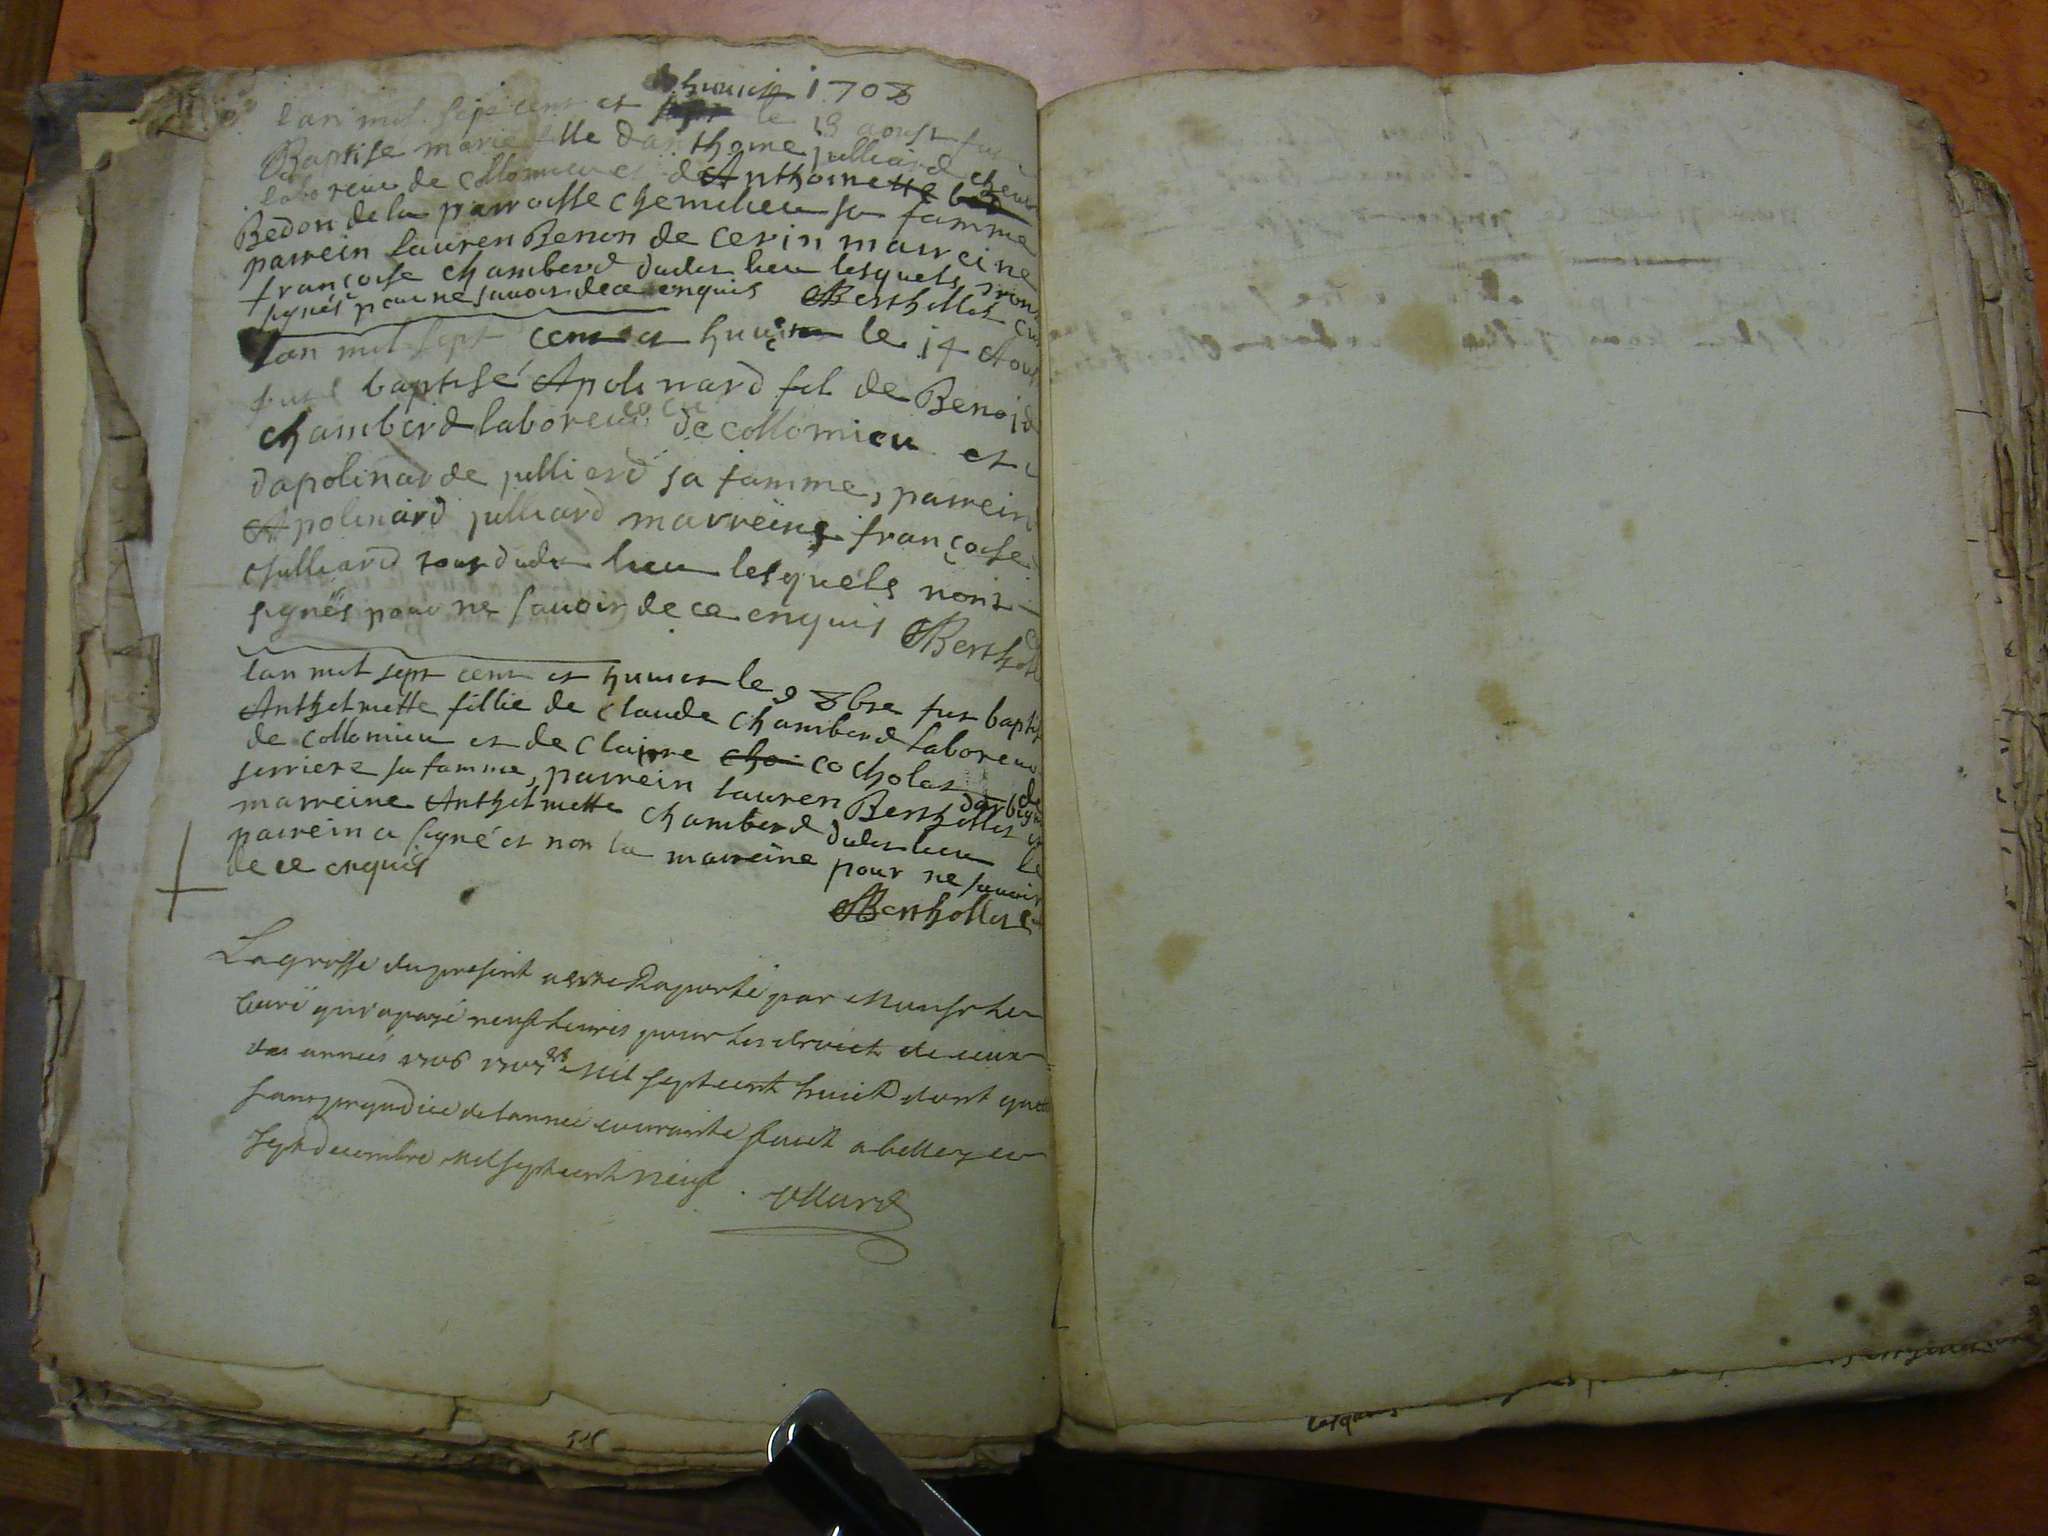 huuict 1708
lan mil sept cent et le 13 aoust fut
Baptise marie fille danthoine julliard
laboreur de collomieu et de Anthoinette
Bedon de la parroisse chemilieu sa famme
parrein lauren Benon de cerin marreine
francoise chamberd dudit lieu lesquels nont
signés pour ne savoir de ce enquis Berthollet cu
lan mil sept cent et huict le 14 Aoust
fust baptisé Apolinard fil de Benoid
chamberd laboreur de collomieu et
dapolinarde julliard sa famme, parrein
Apolinard julliard marreine francoise
Julliard tous dudit lieu lesquels nont
signés pour ne savoir de ce enquis Berthol
lan mil sept cent et huict le 9 8bre fut baptis
Anthelmette fillie de claude chamberd laboreur
de collomieu et de clairre cho cocholat de
serriere sa famme, parrein lauren Berthollet et
marreine Anthelmette chamberd dudit lieu le
parrein a signé et non la marreine pour ne savoir
de ce enquis
Berthollet cu
La grosse du present a estre Raporté par Monsr le
Curé qui a payé neuf livres pour les droict de ceux
des années 1706 1707 et Mil sept cent huict dont quit
sans prejudice de lannée courante faict a belley ce
sept decembre mil sept cent neuf.